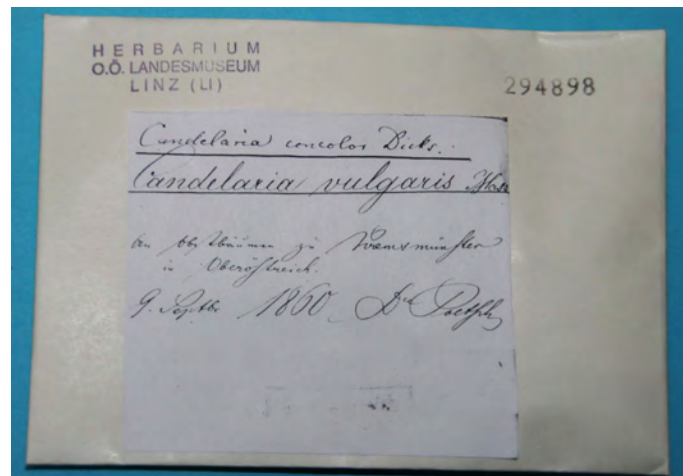 HERBARIUM
O.Ö. LANDESMUSEUM
LINZ (LI)
294898
Candelaria concolor Dicks.
Candelaria vulgaris
an Obstbäumen zu Kremsmünster
in Oberöstreich.
9. Septbr 1860. Dr Poetsch